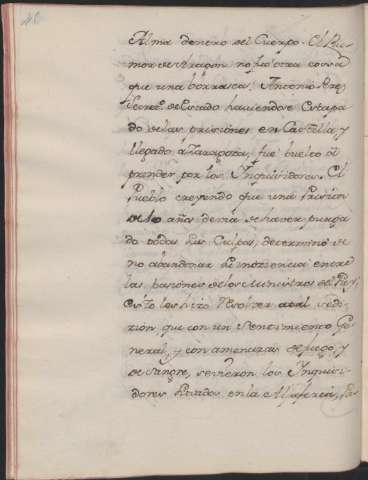 Alma dentro del Cuerpo. El Ru-
mor de Aragon no fue otra cosa
que una borrasca; Antonio Perez
Secret.º de Estado haviendose escapa
do de las prisiones en Castilla y
llegado a Zaragoza, fue buelto à
prender por los Inquisidores. El
Pueblo creyendo que una Prision
de 10 años devia de haver purga
do todas sus Culpas, determinò de
no abandonar la inocencia entre
las pasiones de los Ministros del Rey,
esto los hizo resolver
que con un Sentimiento Ge
neral, y con amenazas de fuego, y
de sangre, se vieron los Inquisi-
dores sitiados en la Aljaferia